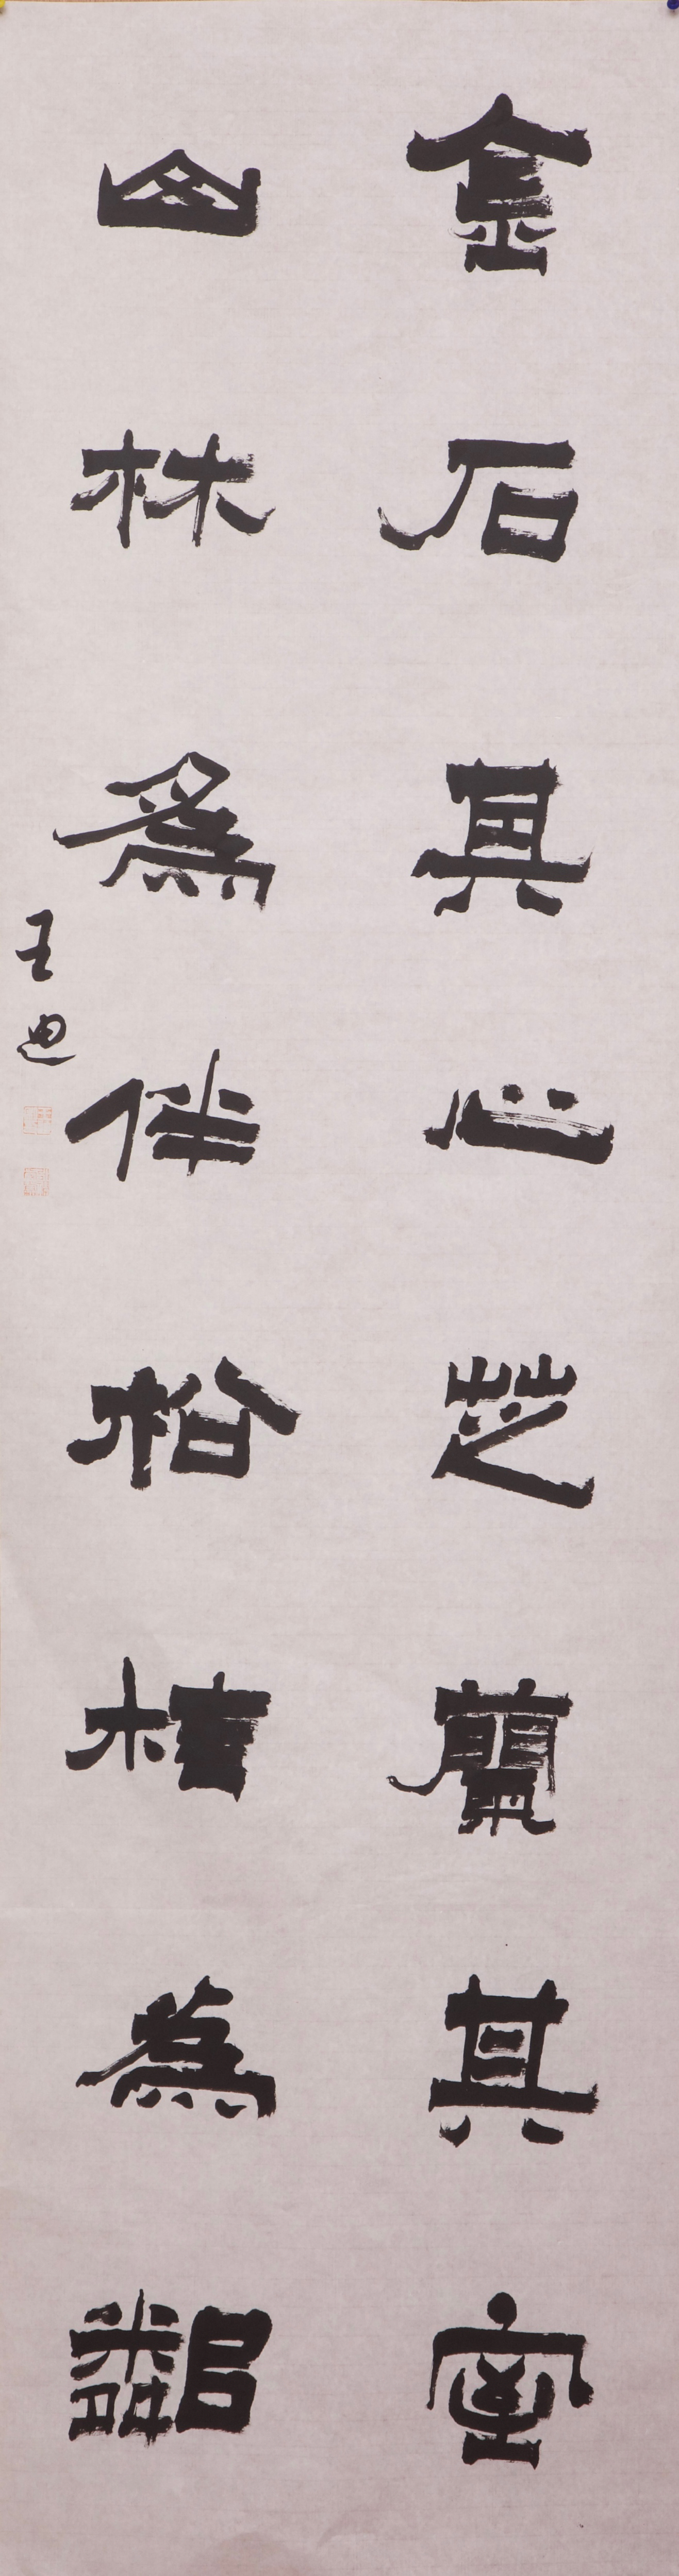 金石其心芝蘭其室
山林為伴松桂為鄰
王迪